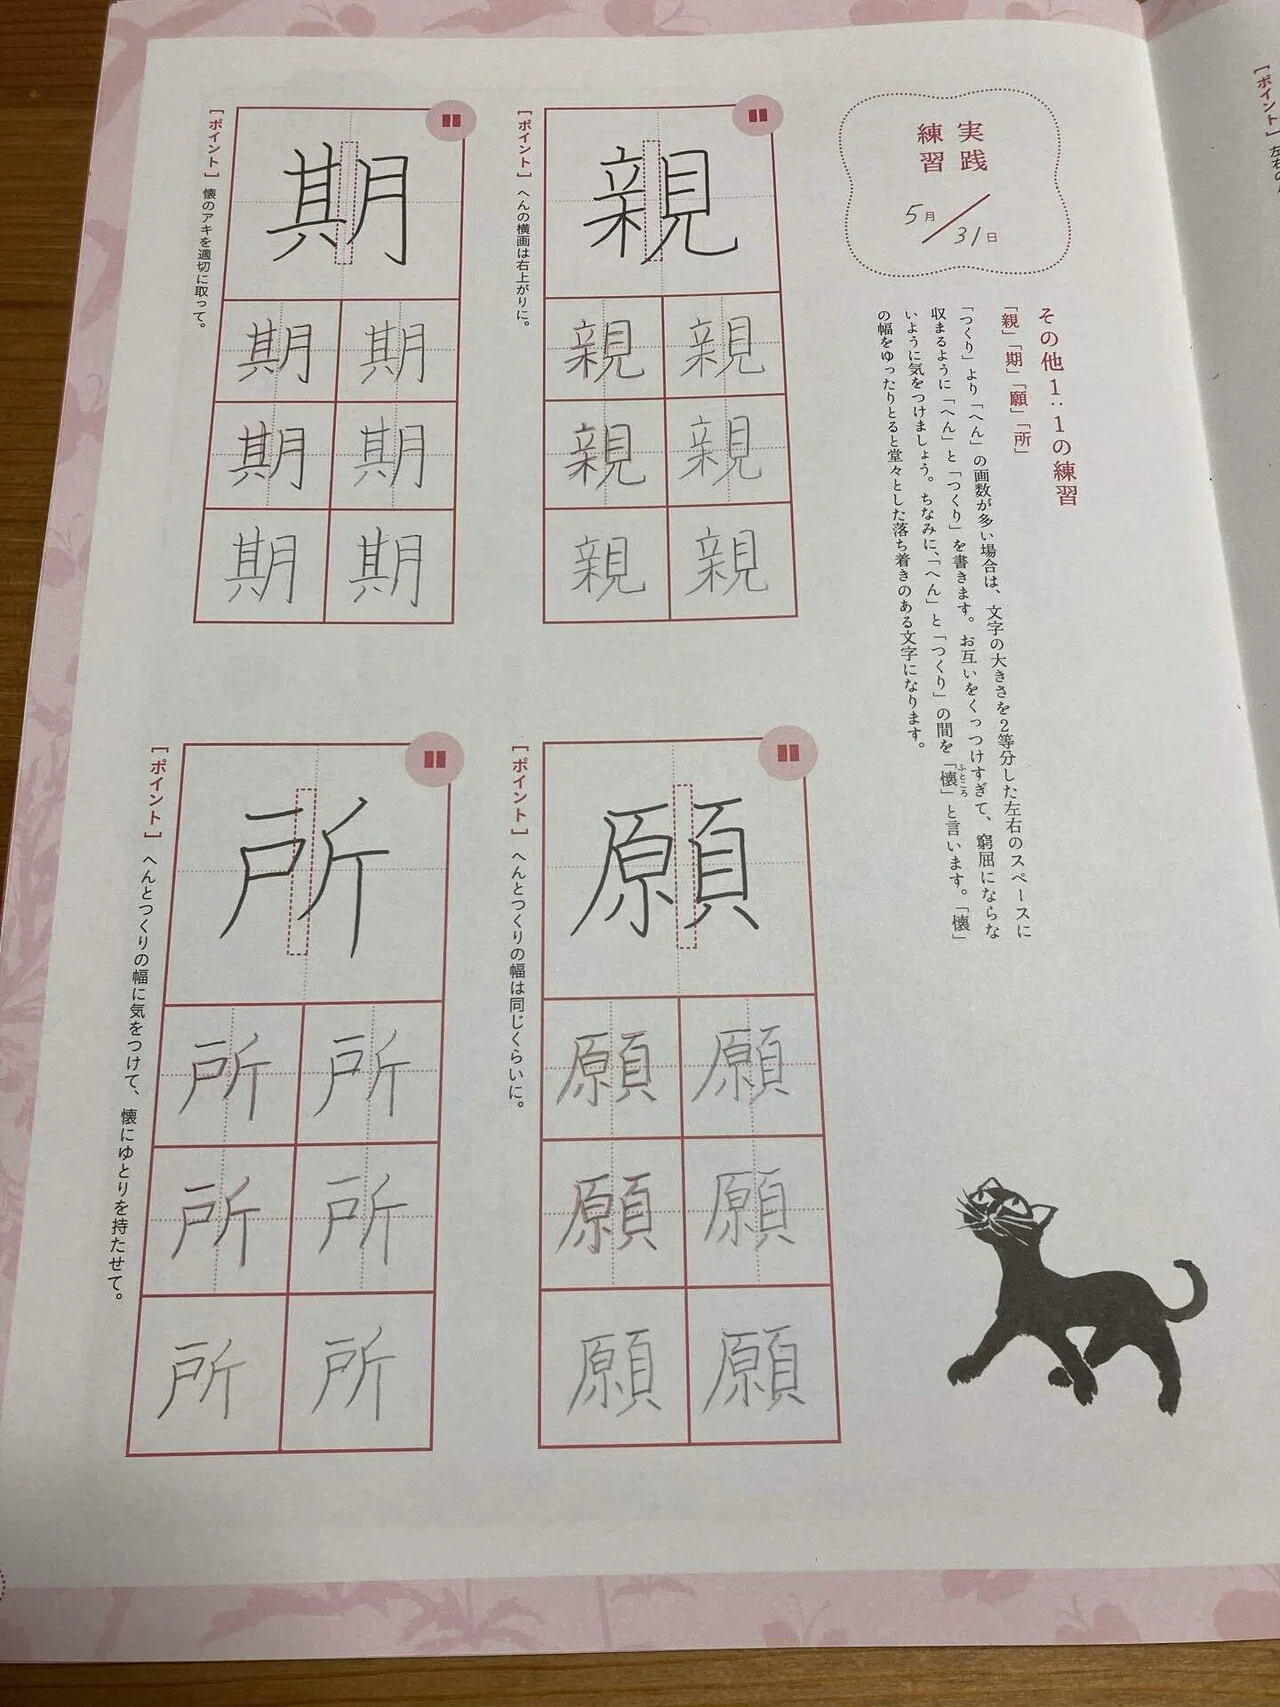 実践
練習
5月
31日
その他1:1の練習
「親」「期」「願」「所」
「つくり」より「へん」の画数が多い場合は、文字の大きさを2等分した左右のスペースに
収まるように「へん」と「つくり」を書きます。お互いをくっつけすぎて、窮屈にならな
いように気をつけましょう。ちなみに、「へん」と「つくり」の間を「懐」と言います。「懐」
ふところ
の幅をゆったりとると堂々とした落ち着きのある文字になります。
親
親 親
親 親
親 親
[ポイント] へんの横画は右上がりに。
期
期 期
期 期
期 期
[ポイント] 懐のアキを適切に取って。
願
願 願
願 願
願 願
[ポイント] へんとつくりの幅は同じくらいに。
所
所 所
所 所
所 所
[ポイント] へんとつくりの幅に気をつけて、懐にゆとりを持たせて。
[ポイント] 左右の